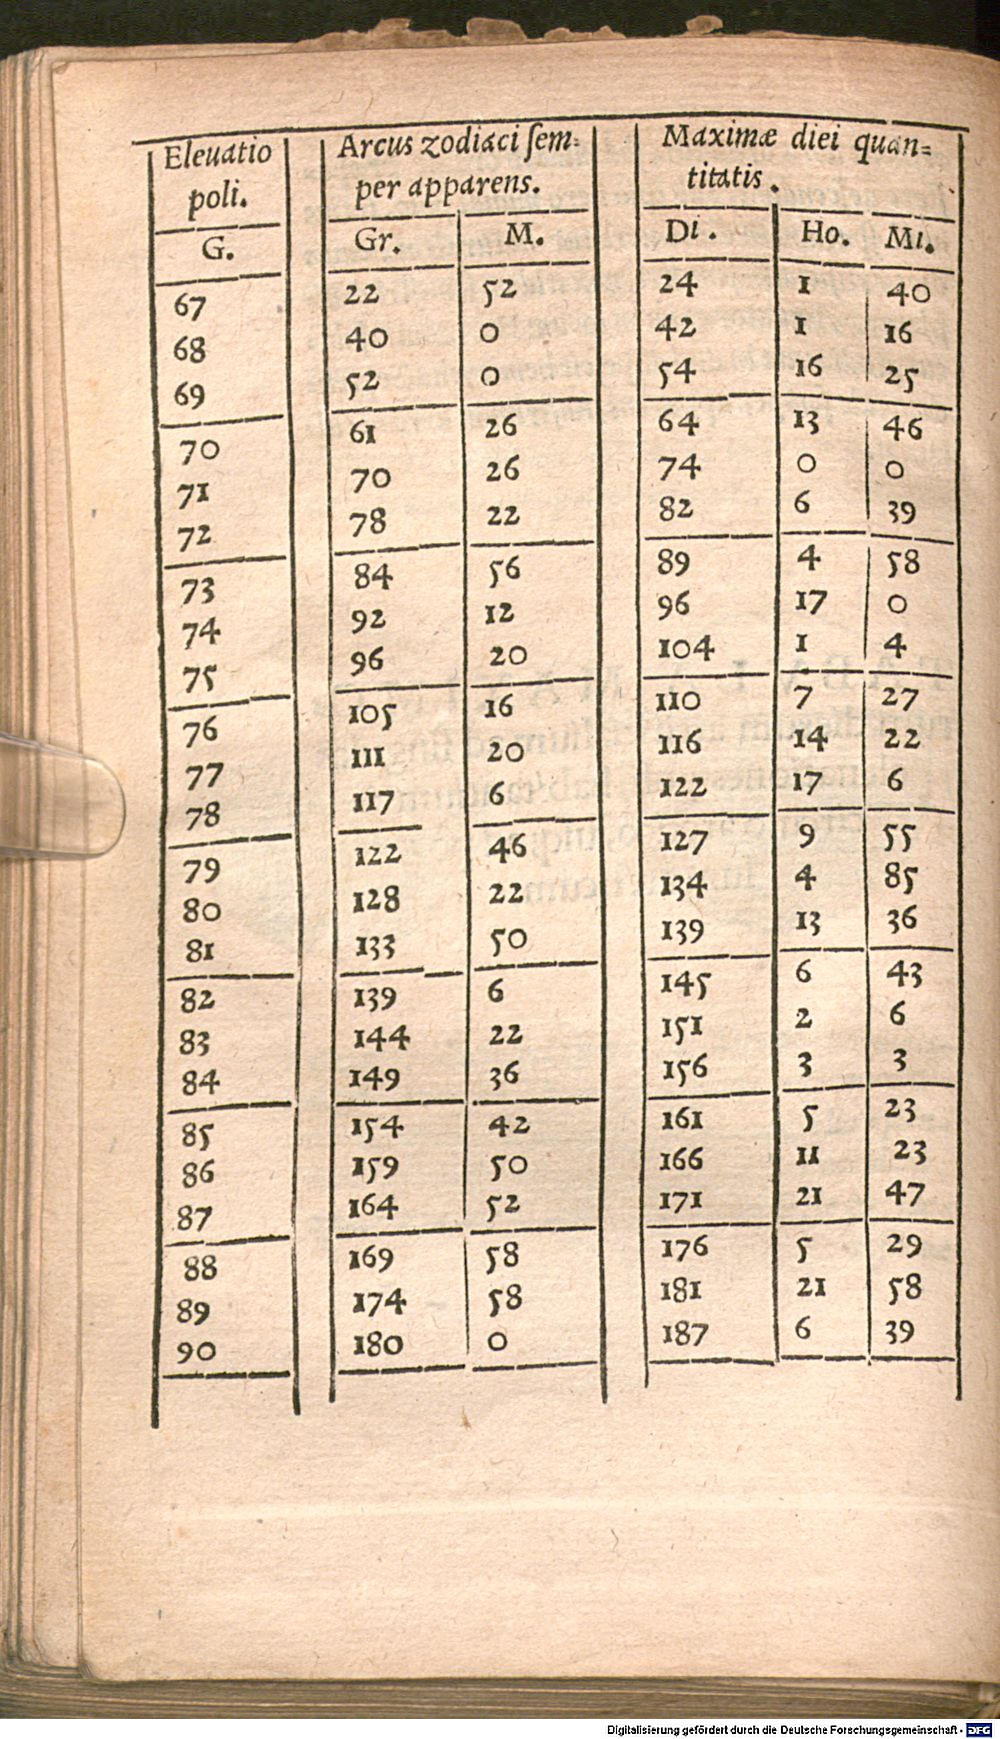 Eleuatio Arcus zodiaci ſem- Maximæ diei quan=
poli. per apparens. titatis.
G. Gr. M. Di. Ho. Mi.
67 22 52 24 1 40
68 40 0 42 1 16
69 52 0 54 16 25
70 61 26 64 13 46
71 70 26 74 0 0
72 78 22 82 6 39
73 84 56 89 4 58
74 92 12 96 17 0
75 96 20 104 1 4
76 105 16 110 7 27
77 111 20 116 14 22
78 117 6 122 17 6
79 122 46 127 9 55
80 128 22 134 4 85
81 133 50 139 13 36
82 139 6 145 6 43
83 144 22 151 2 6
84 149 36 156 3 3
85 154 42 161 5 23
86 159 50 166 11 23
87 164 52 171 21 47
88 169 58 176 5 29
89 174 58 181 21 58
90 180 0 187 6 39
Digitalisierung gefördert durch die Deutsche Forschungsgemeinschaft - DFG